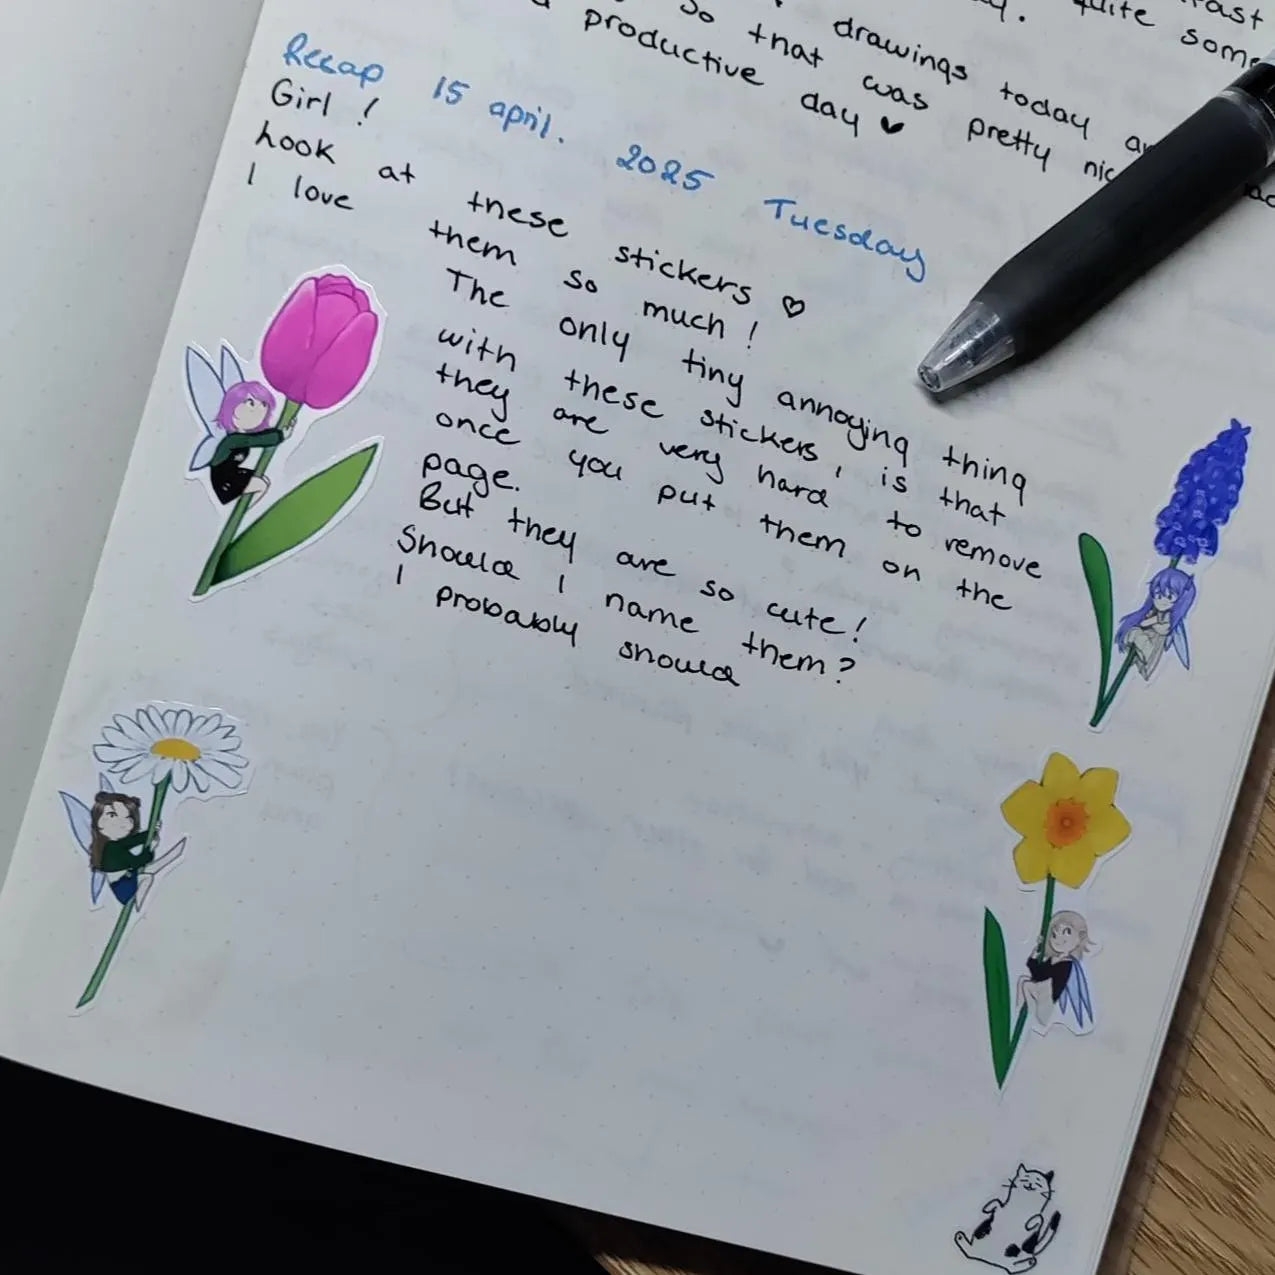 fast
quite some
drawings today
so that was pretty nic
productive day ♥
Recap 15 april. 2025 Tuesday
Girl !
Look at these stickers ♡
I love them so much !
The only tiny annoying thing
with these stickers, is that
they are very hard to remove
once you put them on the
page.
But they are so cute!
Should I name them?
I probably should